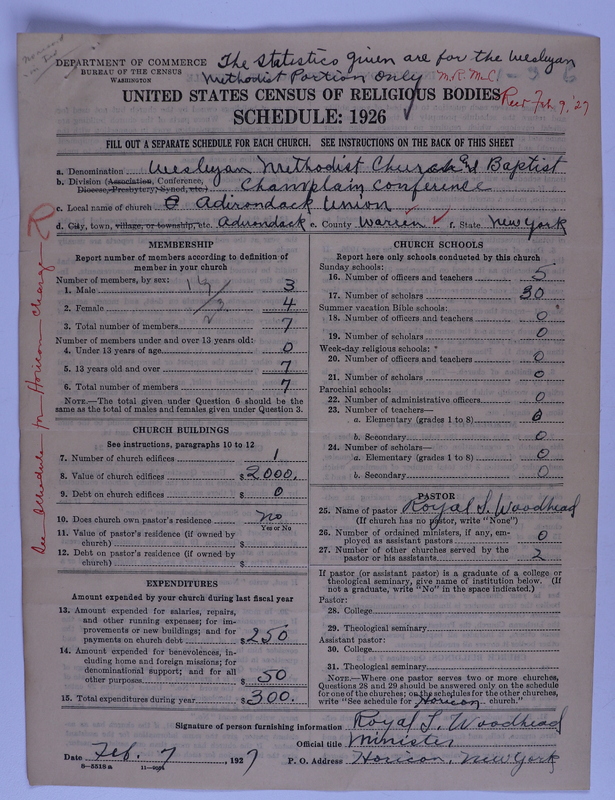 DEPARTMENT OF COMMERCE
BUREAU OF THE CENSUS
WASHINGTON
The statistics given are for the Wesleyan
Methodist Portion only M.R. McC
UNITED STATES CENSUS OF RELIGIOUS BODIES
Rec'd Feb 9, '27
SCHEDULE: 1926
FILL OUT A SEPARATE SCHEDULE FOR EACH CHURCH. SEE INSTRUCTIONS ON THE BACK OF THIS SHEET
a. Denomination Wesleyan Methodist Church and Baptist
b. Division (Association, Conference, Diocese, Presbytery, Synod, etc.) Champlain Conference
c. Local name of church Adirondack Union
d. City, town, village, or township, etc. Adirondack e. County Warren f. State New York
See Schedule for Horicon charge
MEMBERSHIP
Report number of members according to definition of
member in your church
Number of members, by sex:
1. Male 3
2. Female 4
3. Total number of members 7
Number of members under and over 13 years old:
4. Under 13 years of age 0
5. 13 years old and over 7
6. Total number of members 7
NOTE.—The total given under Question 6 should be
the same as the total of males and females given under Question 3.
CHURCH BUILDINGS
See instructions, paragraphs 10 to 12
7. Number of church edifices 1
8. Value of church edifices $2000.
9. Debt on church edifices $ 0
10. Does church own pastor's residence no
Yes or No
11. Value of pastor's residence (if owned by
church) $
12. Debt on pastor's residence (if owned by
church) $
EXPENDITURES
Amount expended by your church during last fiscal year
13. Amount expended for salaries, repairs,
and other running expenses; for im-
provements or new buildings; and for
payments on church debt $250
14. Amount expended for benevolences, in-
cluding home and foreign missions; for
denominational support; and for all
other purposes $ 50
15. Total expenditures during year $300.
CHURCH SCHOOLS
Report here only schools conducted by this church
Sunday schools:
16. Number of officers and teachers 5
17. Number of scholars 30
Summer vacation Bible schools:
18. Number of officers and teachers 0
19. Number of scholars 0
Week-day religious schools:
20. Number of officers and teachers 0
21. Number of scholars 0
Parochial schools:
22. Number of administrative officers 0
23. Number of teachers—
a. Elementary (grades 1 to 8) 0
b. Secondary 0
24. Number of scholars—
a. Elementary (grades 1 to 8) 0
b. Secondary 0
PASTOR
25. Name of pastor Royal S. Woodhead
(If church has no pastor, write "None")
26. Number of ordained ministers, if any, em-
ployed as assistant pastors 0
27. Number of other churches served by the
pastor or his assistants 2
If pastor (or assistant pastor) is a graduate of a college or
theological seminary, give name of institution below. (If
not a graduate, write "No" in the space indicated.)
Pastor:
28. College
29. Theological seminary
Assistant pastor:
30. College
31. Theological seminary
NOTE.—Where one pastor serves two or more churches,
Questions 28 and 29 should be answered only on the schedule
for one of the churches; on the schedules for the other churches,
write "See schedule for Horicon church."
Signature of person furnishing information Royal S. Woodhead
Official title Minister
Date Feb. 7, 1927 P. O. Address Horicon, New York
8-5318a